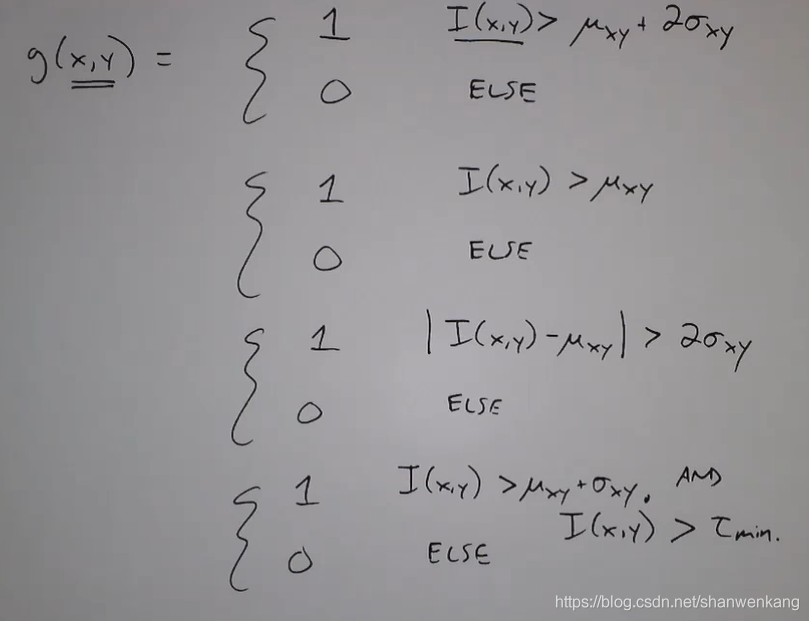 g(x,y) = { 1 I(x,y) > μxy + 2σxy
0 ELSE
{ 1 I(x,y) > μxy
0 ELSE
{ 1 |I(x,y) - μxy| > 2σxy
0 ELSE
{ 1 I(x,y) > μxy + σxy. AND
I(x,y) > τmin.
0 ELSE
https://blog.csdn.net/shanwenkang